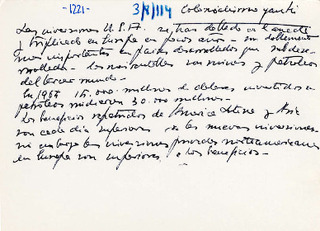 -1221- 3/2/114 Colonialismo yanki
Las inversiones U.S.A. se han doblado en el
y triplicado en Europa en pocos años -
mas importantes en paises desarrollados que subdesa-
rrollados - los mas rentables son minas y petroleos
del tercer mundo -
En 1966 16.000 millones de dolares invertidos en
petroleos 30.000 millones -
Los beneficios repatriados de America Latina y Asia
son cada dia superiores a las nuevas inversiones -
sin embargo las inversiones privadas norteamericanas
en Europa son inferiores a los beneficios -